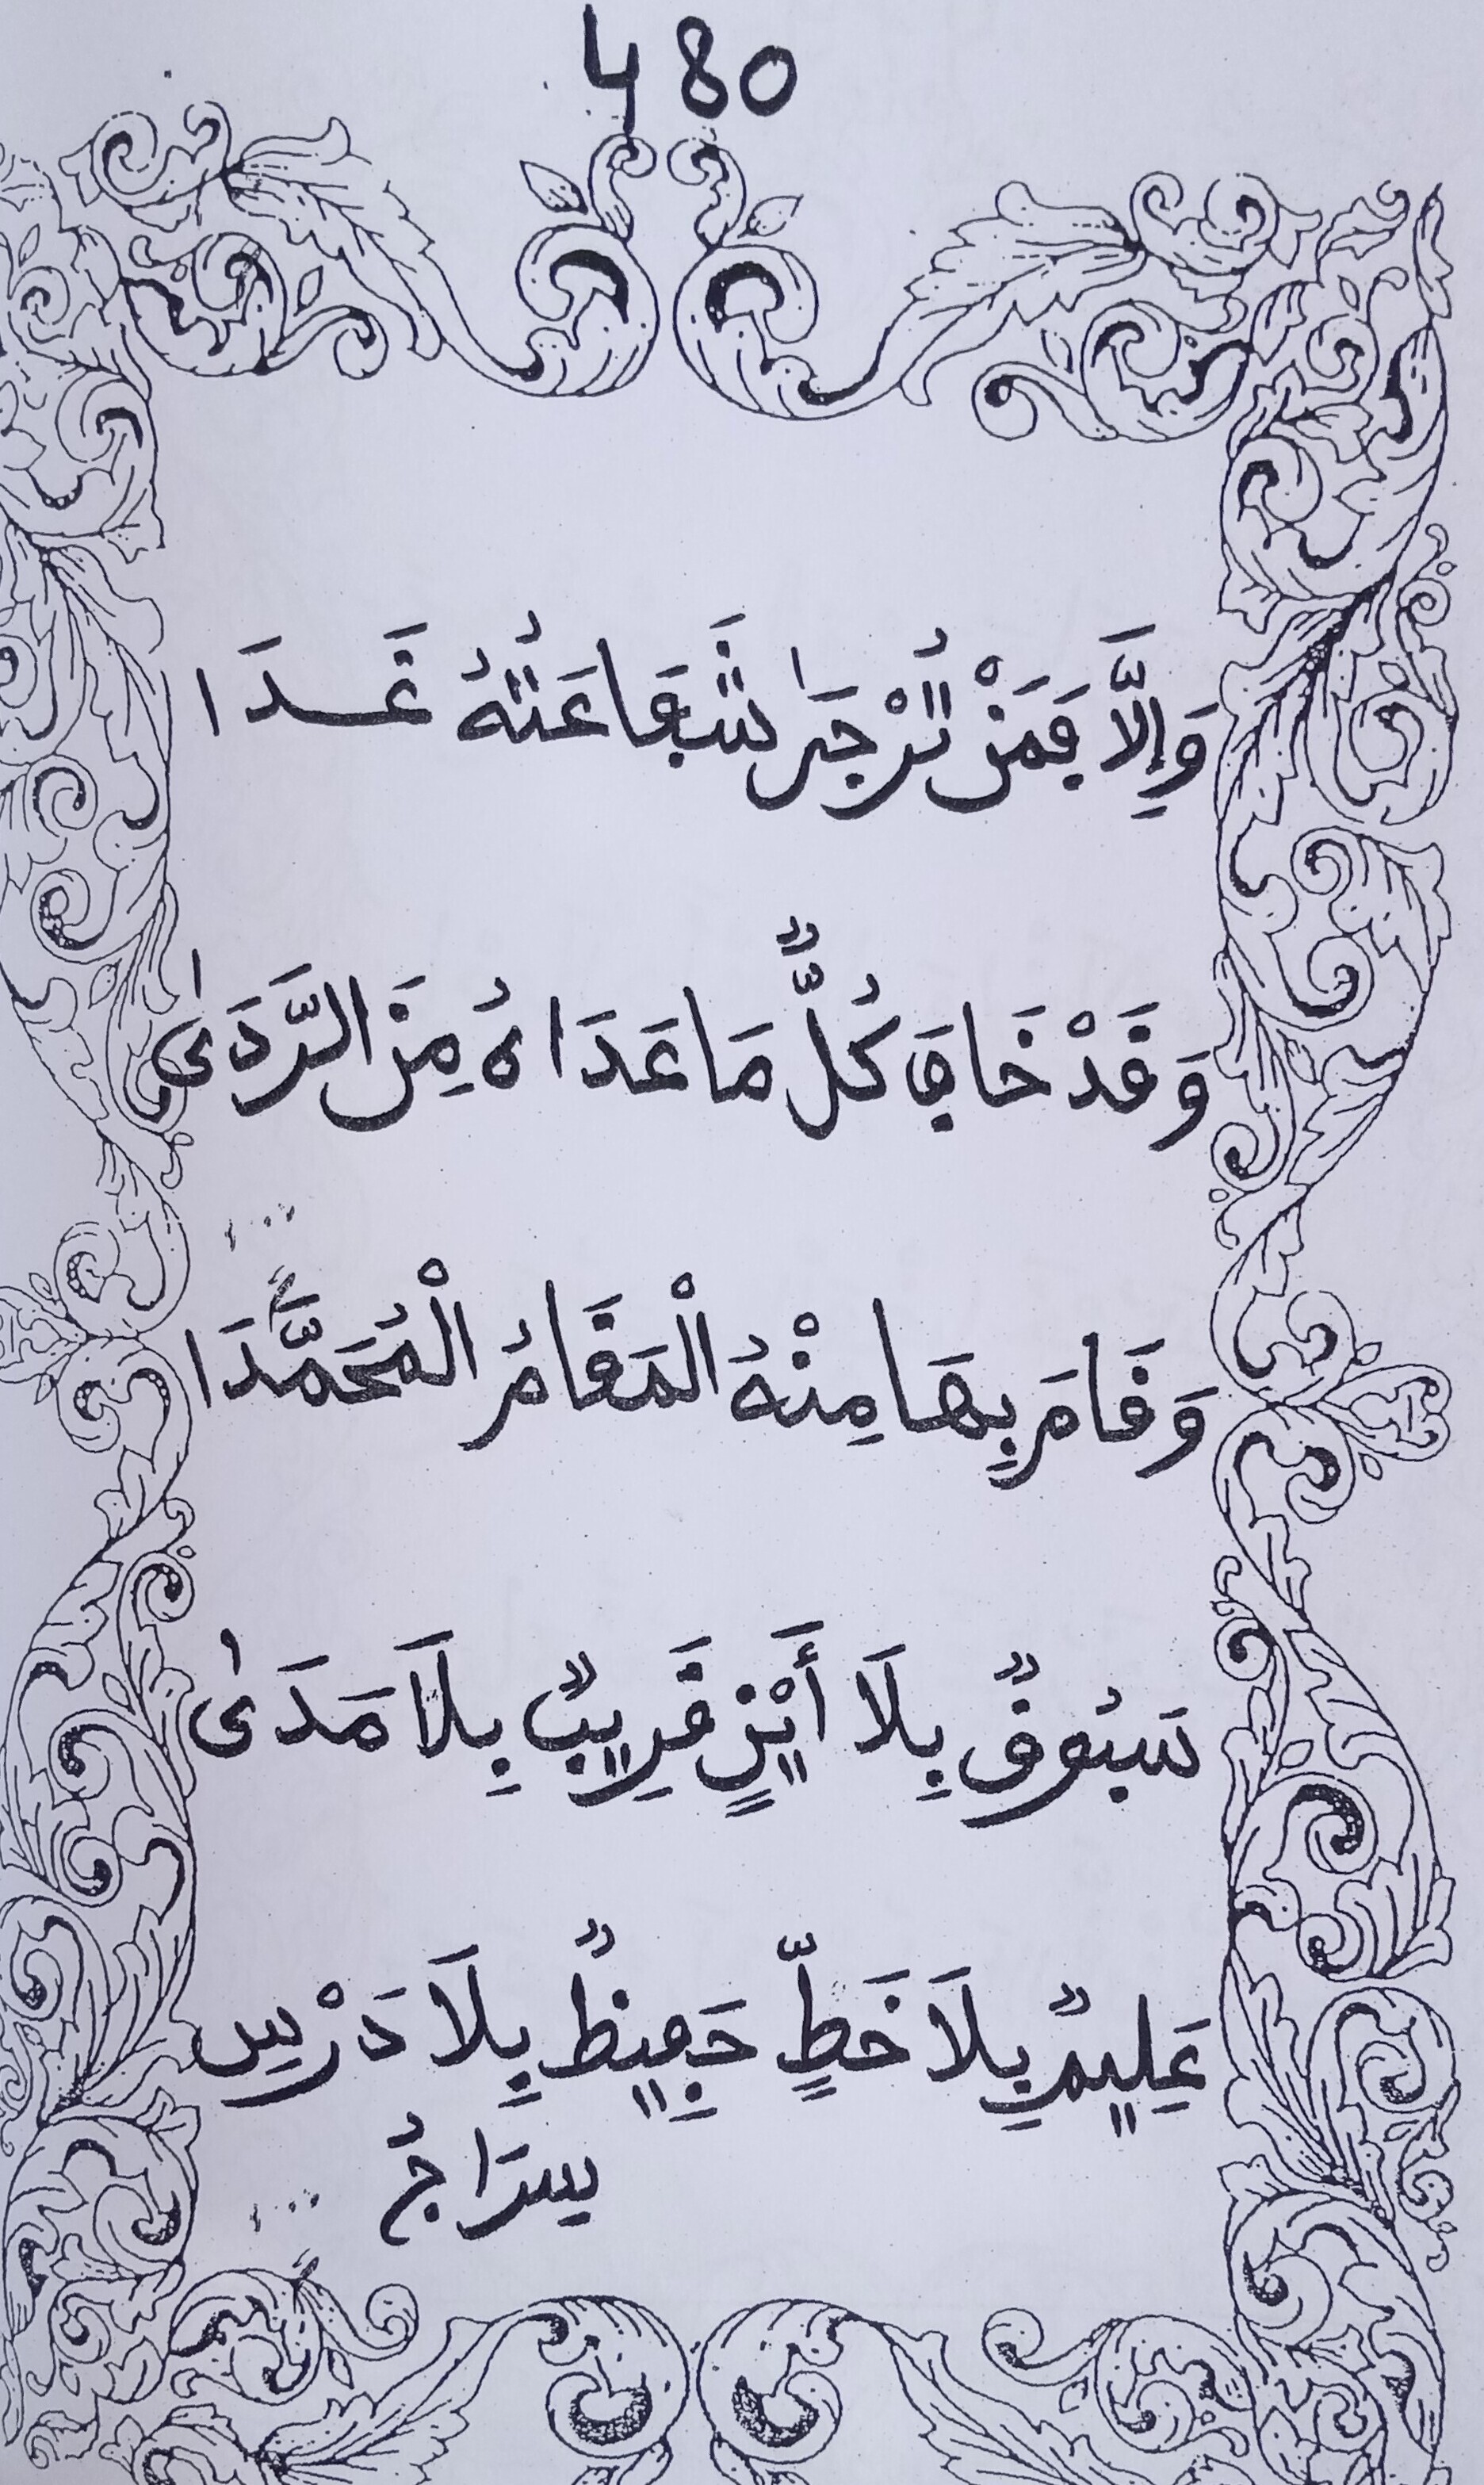 480
وَإِلَّا فَمَنْ تُرْجَىٰ شَفَاعَتُهُ غَدَا
وَقَدْ خَافَ كُلٌّ مَا عَدَاهُ مِنَ الرَّدَىٰ
وَقَامَ بِهَا مِنْهُ الْمَقَامُ الْمُحَمَّدَا
سَبُوقٌ بِلَا أَيْنٍ قَرِيبٌ بِلَا مَدَىٰ
عَلِيمٌ بِلَا خَطٍّ حَفِيظٌ بِلَا دَرْسِ
سِرَاجُ